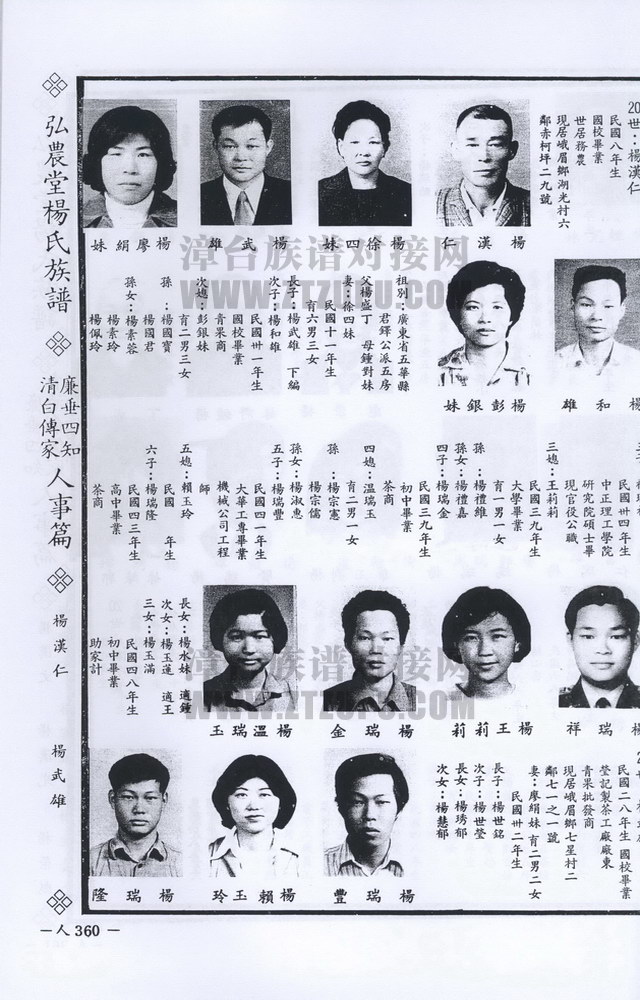 20世：楊漢仁
民國八年生
國校畢業
世居務農
現居峨眉鄉湖光村六
鄰赤柯坪二九號
楊漢仁
楊徐四妹
楊武雄
楊廖絹妹
楊和雄
楊彭銀妹
祖別：廣東省五華縣
君鐸公派五房
父楊盛丁　母鍾對妹
妻：徐四妹
民國十一年生
育六男三女
長子：楊武雄　下編
次子：楊和雄
民國卅一年生
國校畢業
青果商
次媳：彭銀妹
育二男三女
孫：楊國寶
楊國君
孫女：楊素蓉
楊素玲
楊佩玲
民國卅四年生
中正理工學院
研究院碩士畢
現官役公職
三媳：王莉莉
民國三九年生
大學畢業
育一男一女
孫：楊禮維
孫女：楊禮嘉
四子：楊瑞金
民國三九年生
初中畢業
茶商
四媳：溫瑞玉
育二男一女
孫：楊宗憲
楊宗儒
孫女：楊淑惠
五子：楊瑞豐
民國四一年生
大華工專畢業
機械公司工程
師
五媳：賴玉玲
民國　年生
六子：楊瑞隆
民國四三年生
高中畢業
茶商
楊瑞祥
楊王莉莉
楊瑞金
楊溫瑞玉
長女：楊水妹　適鍾
次女：楊玉蓮　適王
三女：楊玉滿
民國四八年生
初中畢業
助家計
民國二八年生　國校畢業
瑩記製茶工廠廠東
青果批發商
現居峨眉鄉七星村二
鄰七一之一號
妻：廖絹妹育二男二女
民國卅二年生
長子：楊世銘
次子：楊世瑩
長女：楊秀郁
次女：楊慧郁
楊瑞豐
楊賴玉玲
楊瑞隆
弘農堂楊氏族譜
廉垂四知
清白傳家
人事篇
楊漢仁
楊武雄
－人360－
漳台族谱对接网
WWW.ZTZUPU.COM
漳台族谱对接网
WWW.ZTZUPU.COM